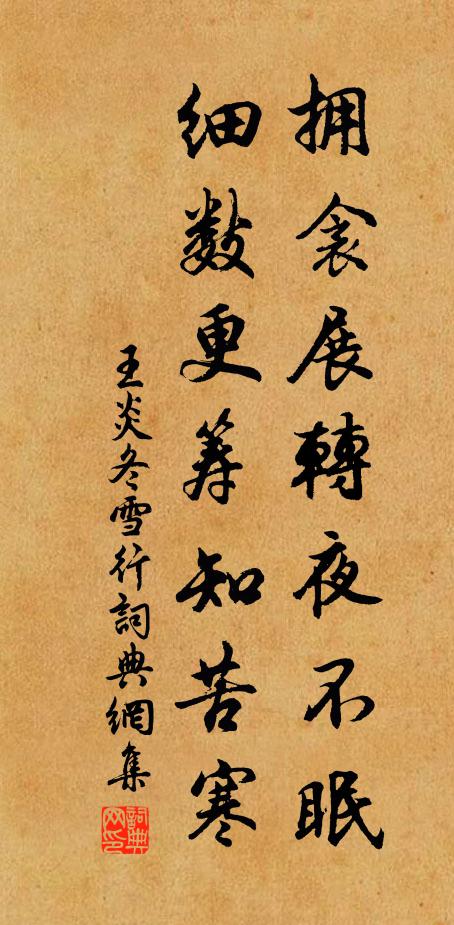 拥衾展轉夜不眠
细數更筹知苦寒
王炎冬雪行詞典網集
詞典网印